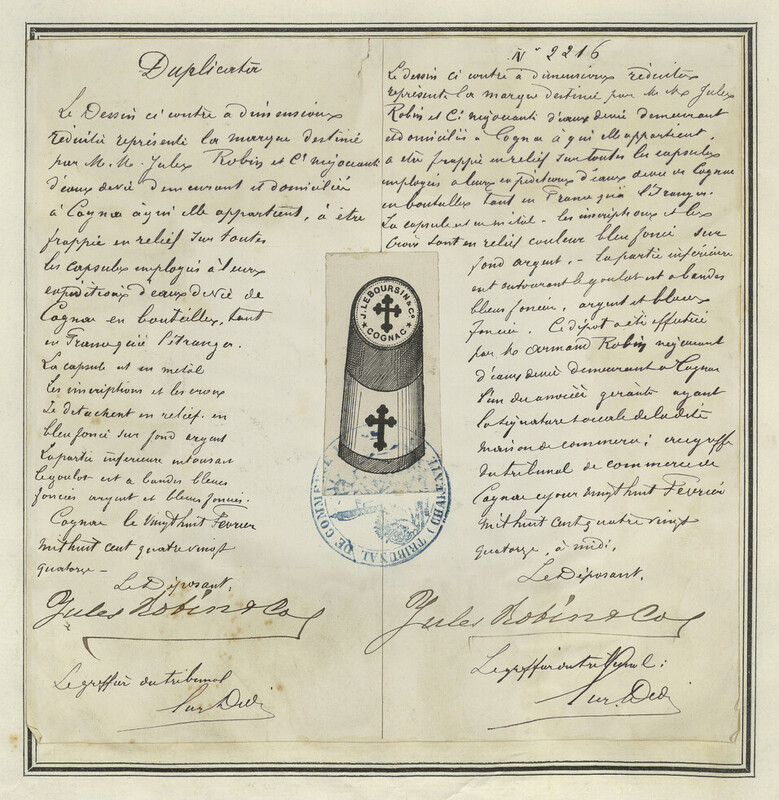 Duplicata
Le Dessin ci contre à dimensions
réduites représente la marque destinée
par M.M. Jules Robin et Cie négociants
d'eaux de vie demeurant et domiciliés
à Cognac à qui elle appartient, à être
frappée en relief sur toutes
les capsules employés à leurs
expéditions d'eaux de vie de
Cognac en bouteilles, tant
en France qu'à l'étranger.
La capsule est en métal
les inscriptions et les croix
se détachent en relief en
bleu foncé sur fond argent
La partie inférieure entourant
le goulot est à bandes bleues
foncées argent et bleues foncées.
Cognac le vingt huit Février
mil huit cent quatre vingt
quatorze -
Le Déposant,
Jules Robin & Co
Le greffier du tribunal
Nº 2216
Le dessin ci contre à dimensions réduites
représente la marque destinée par M.M. Jules
Robin et Cie négociants d'eaux de vie demeurant
et domiciliés à Cognac à qui elle appartient,
à être frappée en relief sur toutes les capsules
employés à leurs expéditions d'eaux de vie de Cognac
en bouteilles tant en France qu'à l'étranger.
La capsule est en métal - les inscriptions et les
croix sont en relief couleur bleu foncé sur
fond argent. - La partie inférieure
est entourant le goulot est à bandes
bleues foncées, argent et bleues
foncées. Ce dépôt a été effectué
par M. Armand Robin négociant
d'eaux de vie demeurant à Cognac
l'un des associés gérants ayant
la signature sociale de la dite
maison de commerce; au greffe
du tribunal de commerce de
Cognac ce jour vingt huit Février
mil huit cent quatre vingt
quatorze, à midi,
Le Déposant,
Jules Robin & Co
Le greffier du tribunal :
J. LEBOURSIN & Co
COGNAC
TRIBUNAL DE COMMERCE